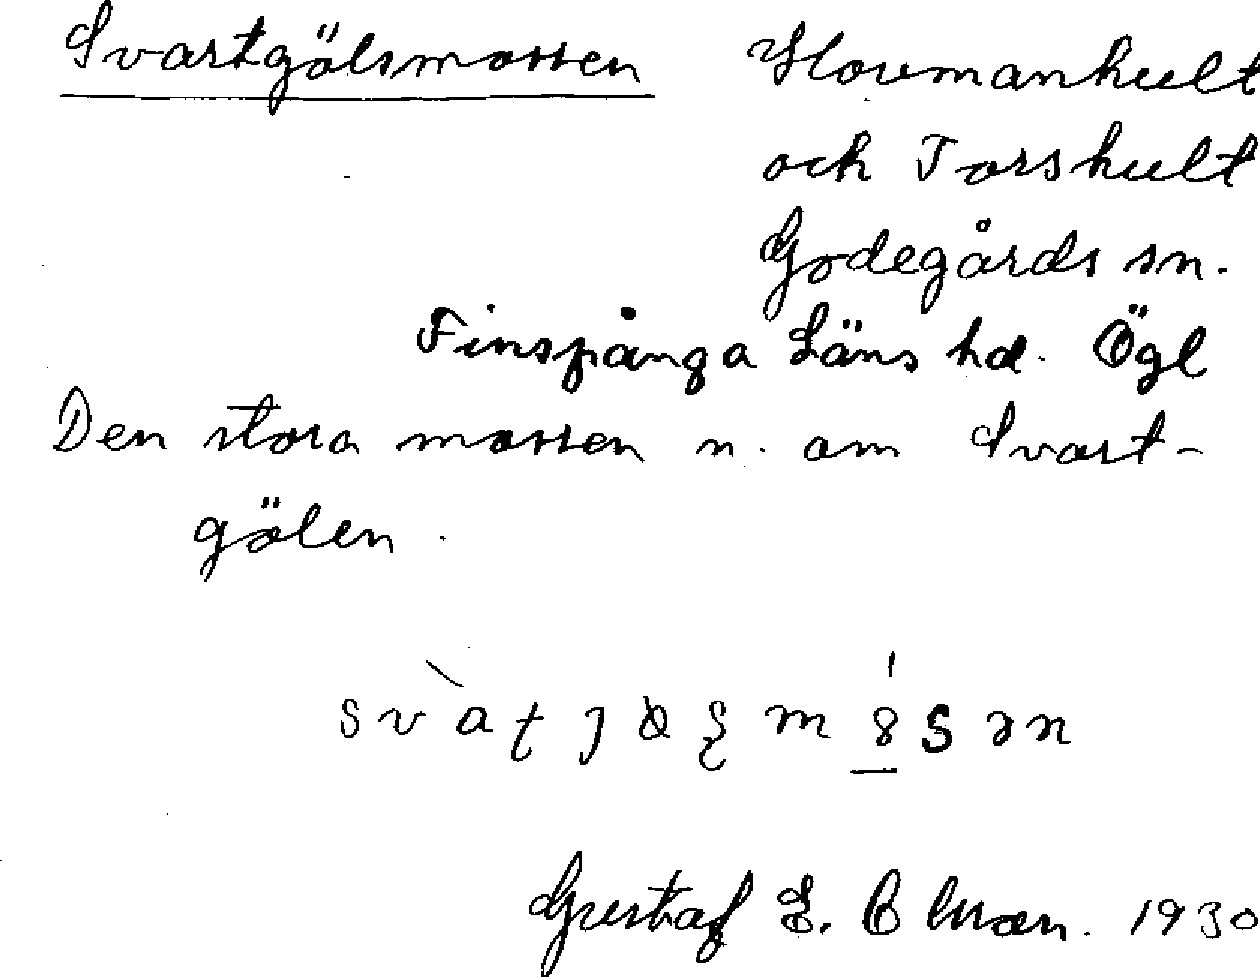 Svartgölsmossen Hovmanhult
och Torshult
Godegårds sn.
Finspånga Läns hd. Ögl
Den stora mossen n. om Svart-
gölen.
Gustaf E. 1930